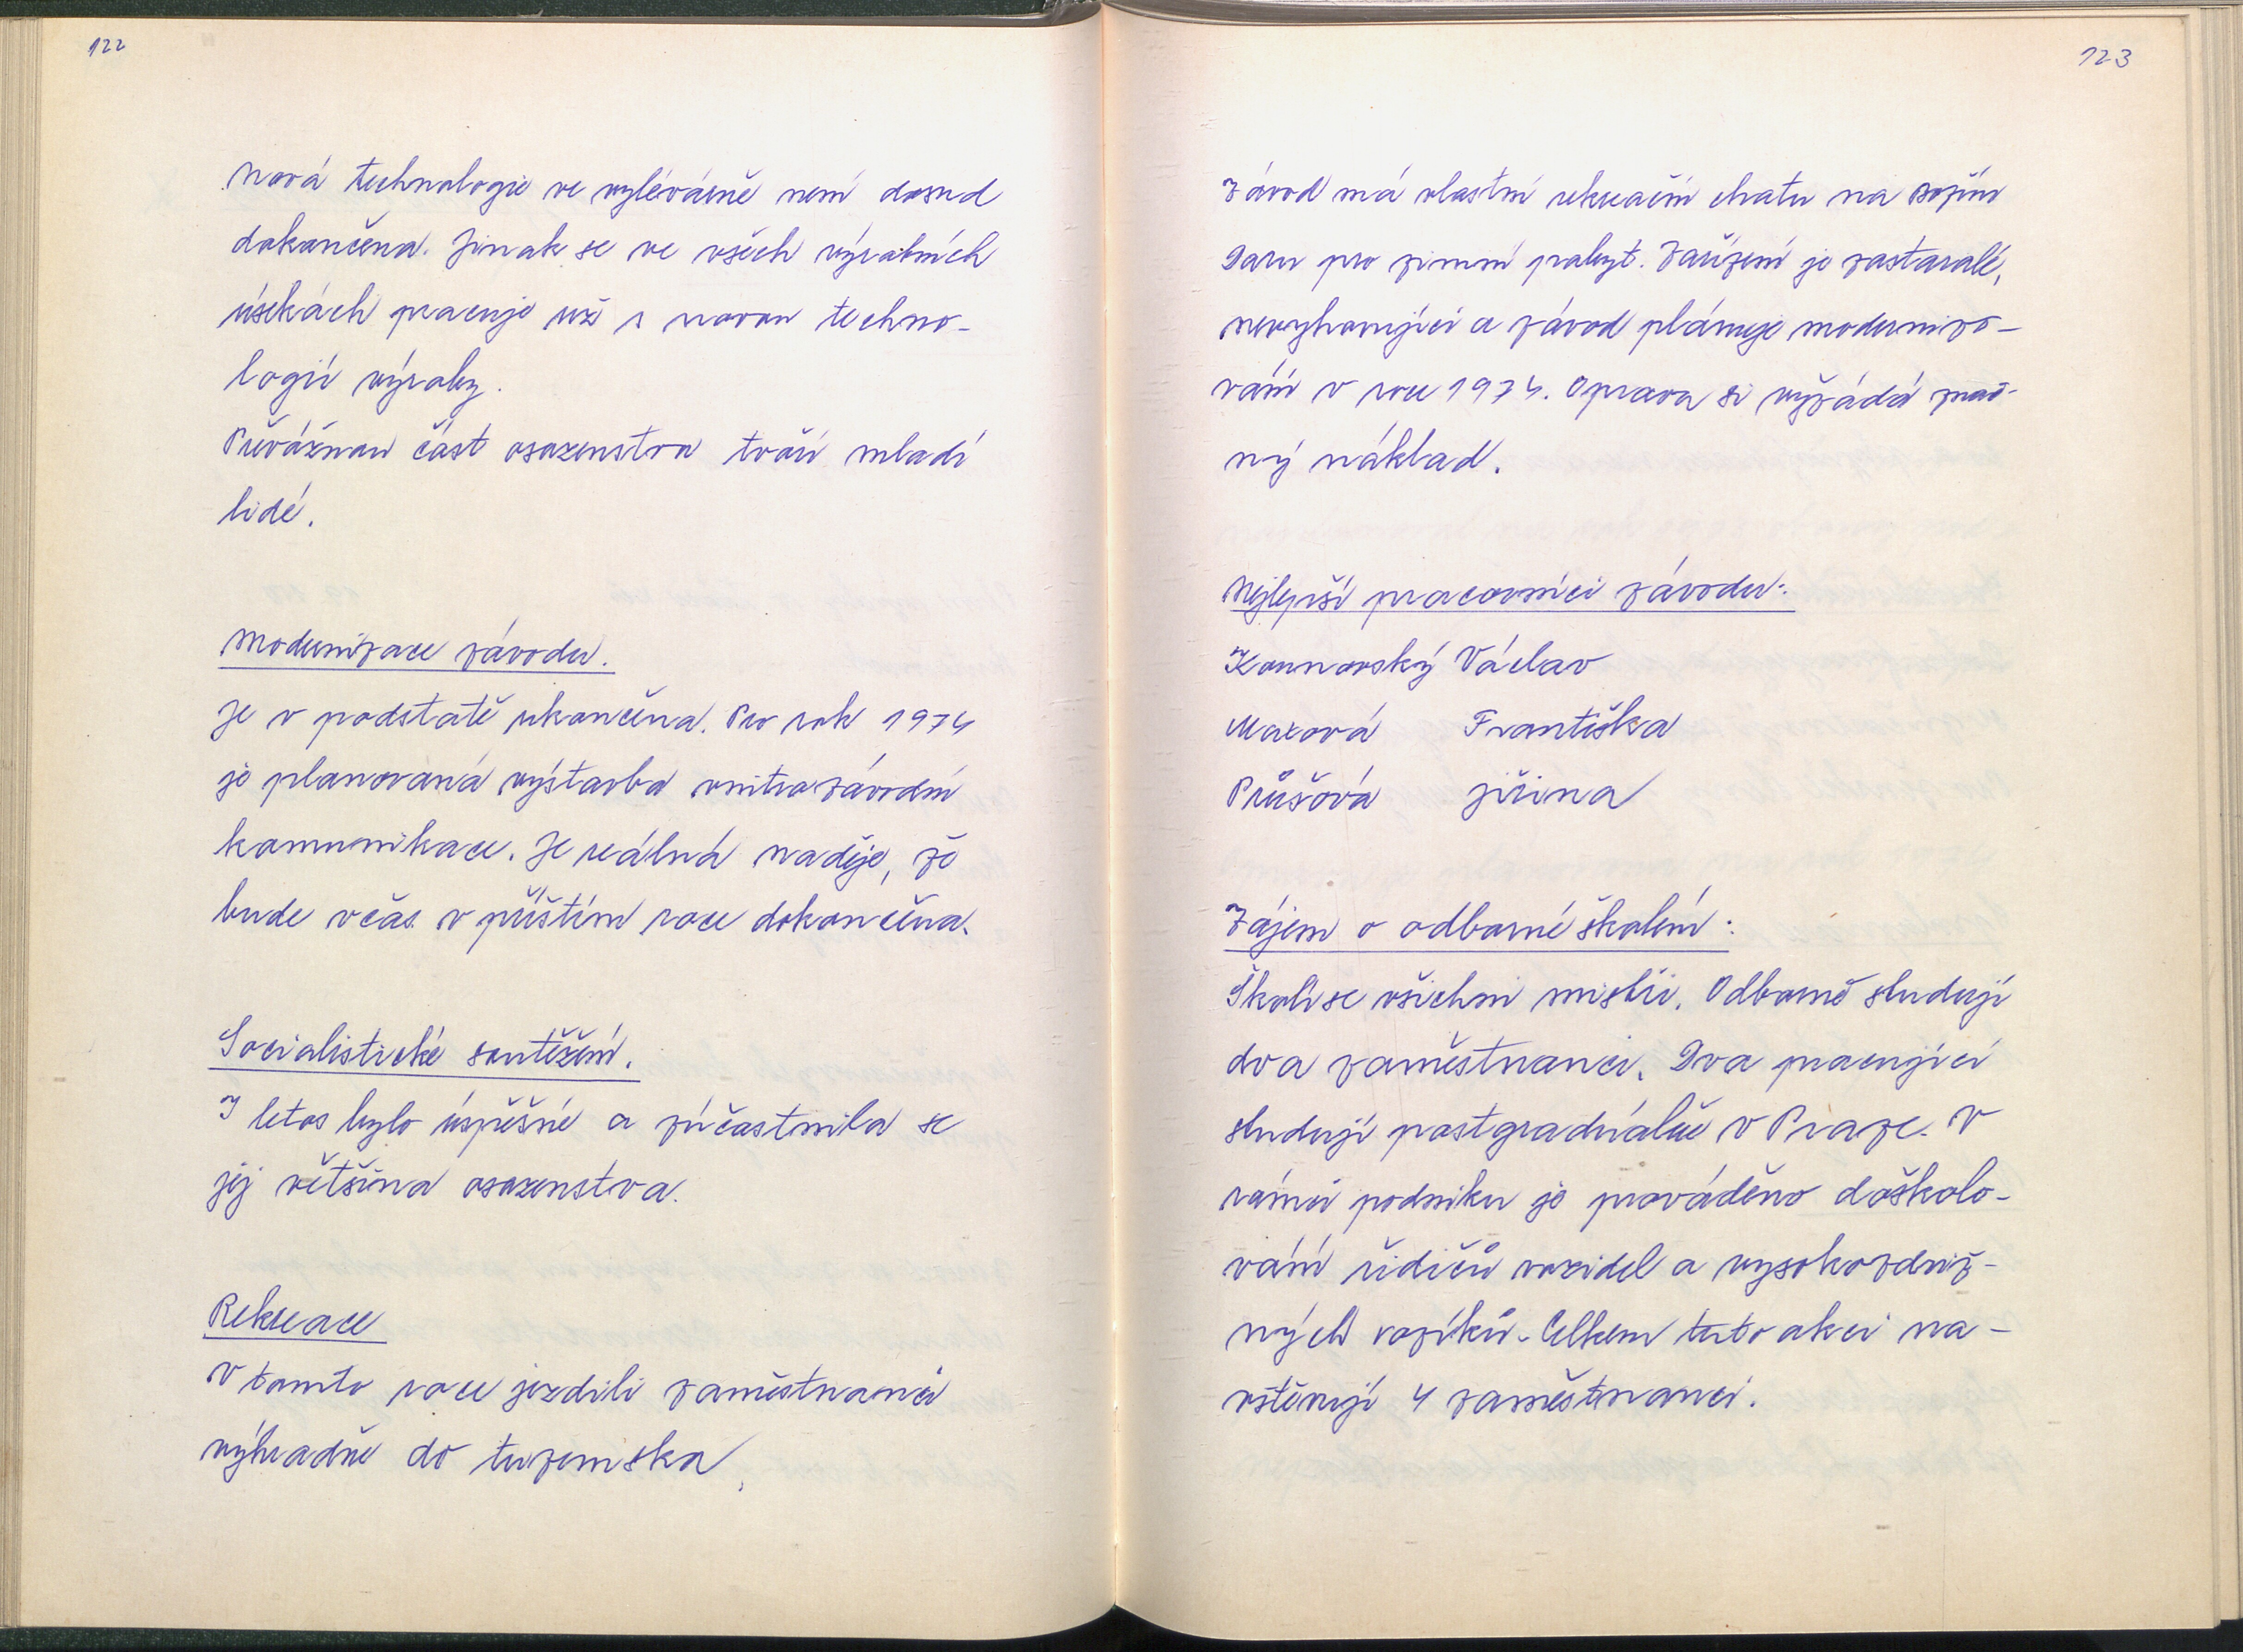 122
Nová technologie ve vylévárně není dosud
dokončena. Jinak se ve všech výrobních
úsecích pracuje už s novou techno-
logií výroby.
Převážnou část osazenstva tvoří mladí
lidé.
Modernizace závodu.
Je v podstatě ukončena. Pro rok 1974
je planovaná výstavba vnitrozávodní
komunikace. Je reálná naděje, že
bude včas v příštím roce dokončena.
Socialistické soutěžení.
I letos bylo úspěšné a zúčastnila se
jej většina osazenstva.
Rekreace
V tomto roce jezdili zaměstnanci
výhradně do tuzemska.
123
Závod má vlastní rekreační chatu na Božím
Daru pro zimní pobyt. Zařízení je zastaralé,
nevyhovující a závod plánuje modernizo-
vání v roce 1974. Oprava si vyžádá znač-
ný náklad.
Nejlepší pracovníci závodu:
Kounovský Václav
Maxová Františka
Průšová Jiřina
Zájem o odborné školení:
Školí se všichni mistři. Odborně studují
dva zaměstnanci. Dva pracující
studují postgraduálně v Praze. V
rámci podniku je prováděno doškolo-
vání řidičů vozidel a vysokozdviž-
ných vozíků. Celkem tuto akci na-
vštěvují 4 zaměstnanci.